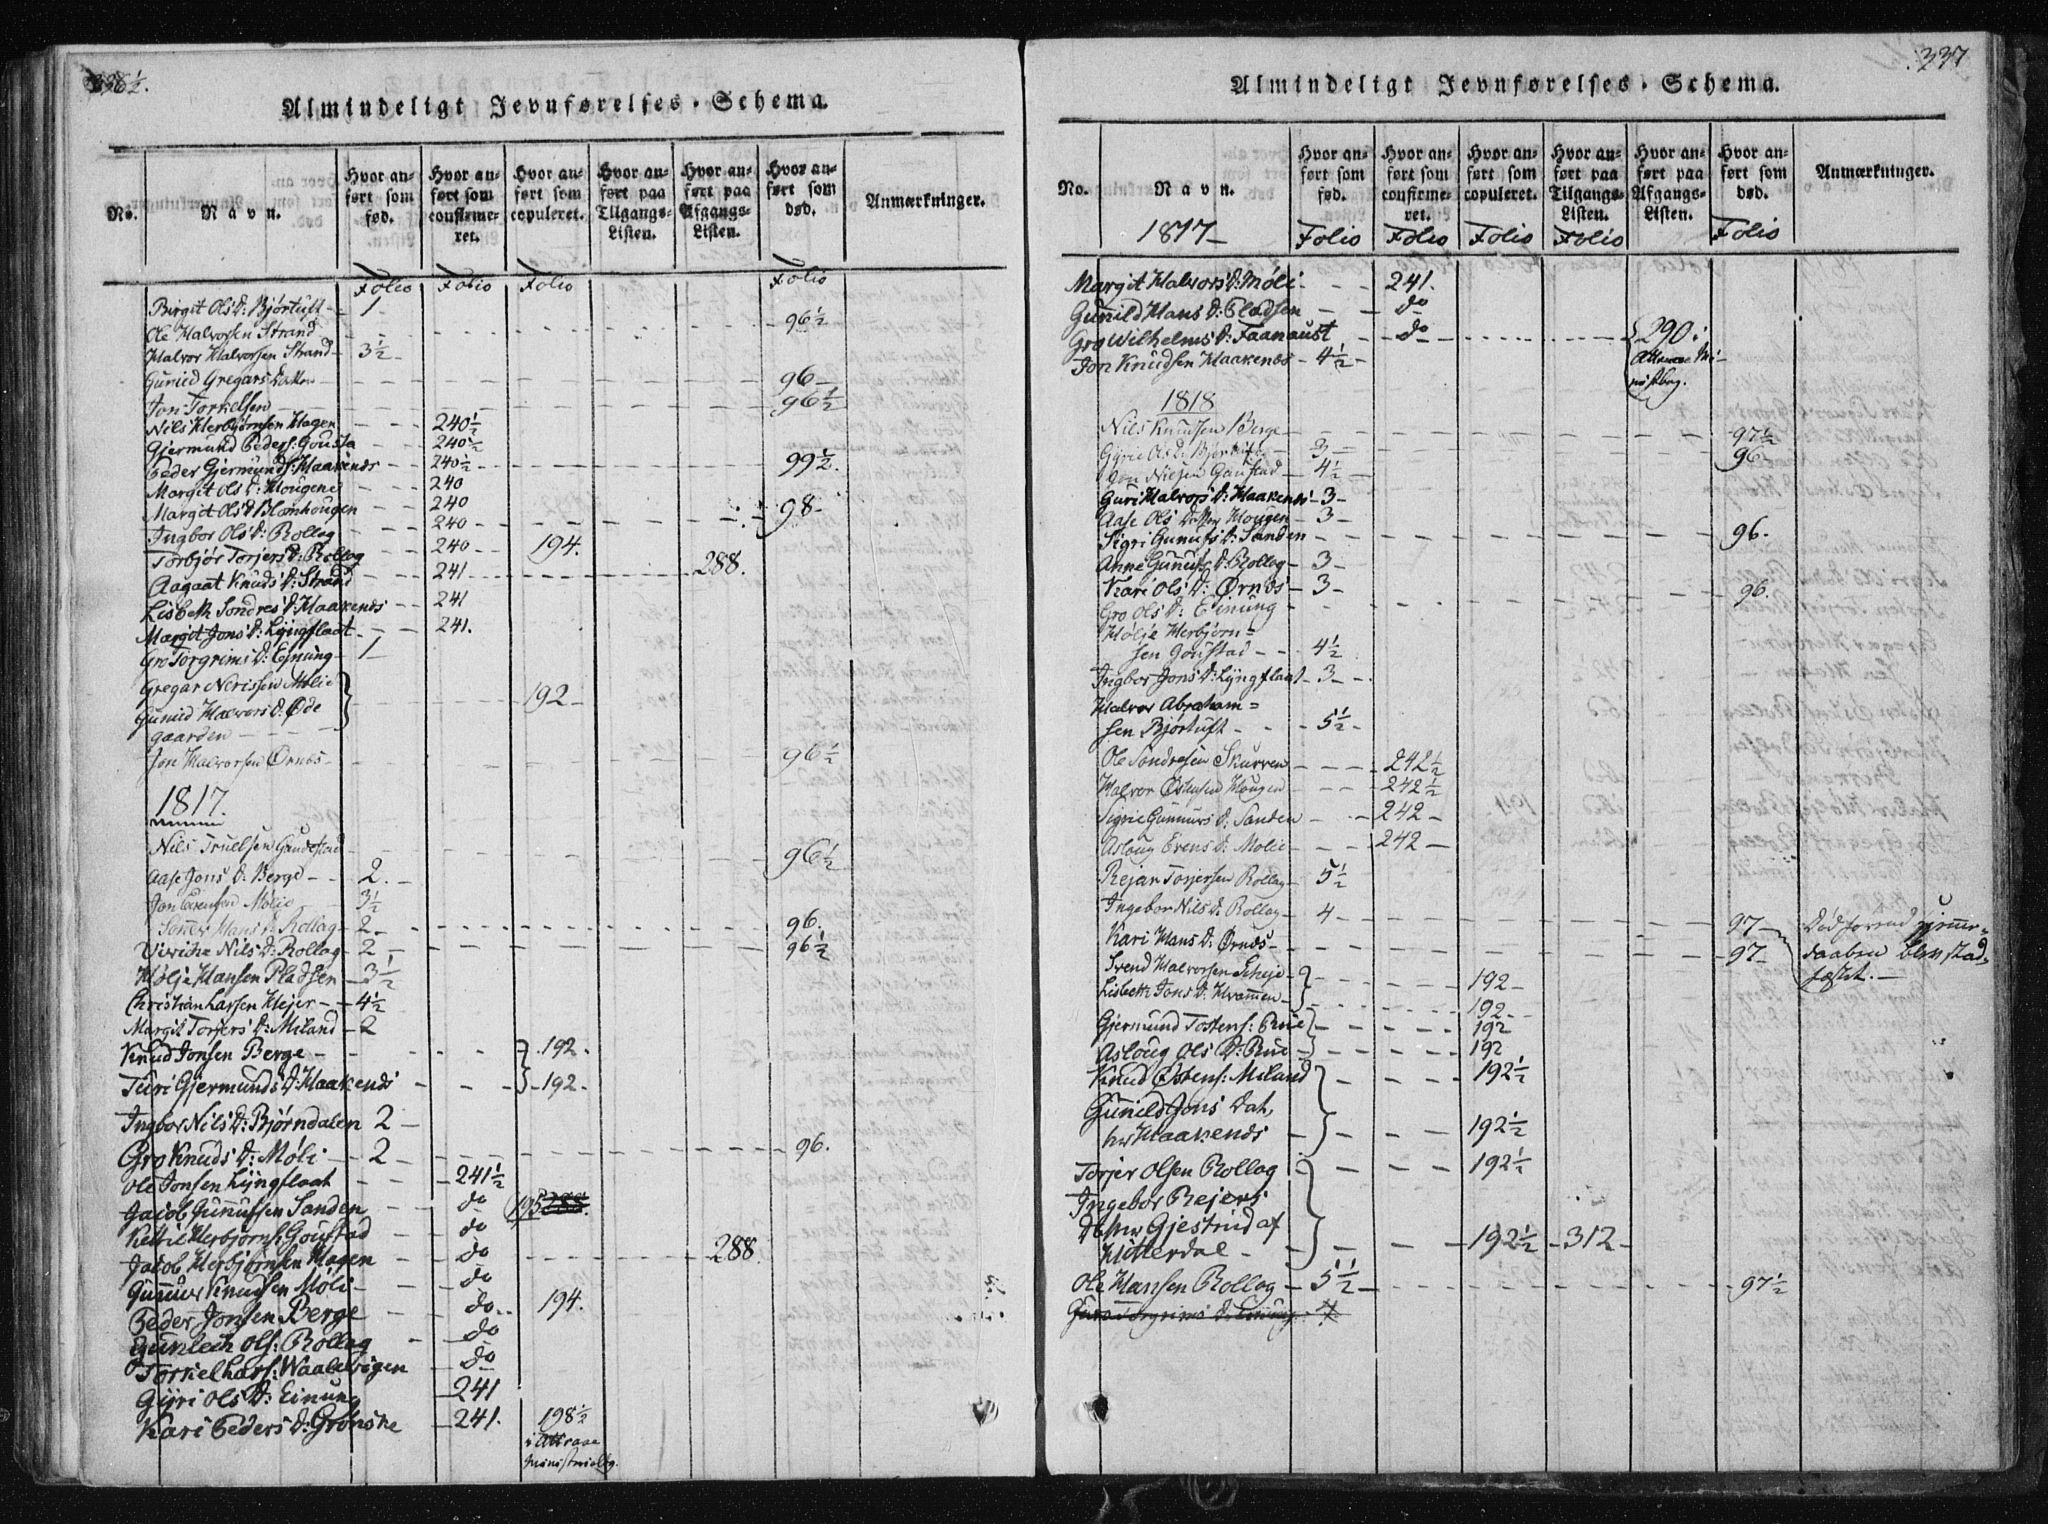 336½.
Almindeligt Jevnførelses-Schema.
No.
Navn.
Hvor anført som fød.
Hvor anført som confirmeret.
Hvor anført som copuleret.
Hvor anført paa Tilgangs-Listen.
Hvor anført paa Afgangs-Listen.
Hvor anført som død.
Anmærkninger.
Folio Folio Folio Folio
Birgit Ols D: Bjørtuft 1
Ole Halvorsen Strand 96½
Halvor Halvorsen Strand 3½
Gunild Gregars 96
Jon Torkelsen 96½
Nils Herbjørnsen Hagen 240½
Gjermund Peders: Gousta 240½
Peder Gjermunds: Haakenæs 240½ 99½.
Margit Ols D: Hougene 240
Margit Ols D Blomhougen 240 98
Ingbor Ols D: Rollag 240
Torbjør Torjers D: Rollag 240 194.
Aagaat Knuds D: Strand 241 288.
Lisbeth Sondres D: Haakenæs 241
Margit Jons D: Lyngflaat 241.
Gro Torgrims D: Ejnung 1
Gregar Nerissen Mølie
Gunild Halvors D: Øde 192
gaarden
Jon Halvorsen Ørnes 96½
1817.
Nils Truelsen Gaudestad 96½
Aase Jons D: Berge 2.
Jon Evensen Mølie 3½
Hans D: Rollag 2. 96.
Viviche Nils D: Rollag 2 96½
Hølje Hansen Pladsen 3½
Christian Larsen Hejer 4½
Margit Torjers D: Miland 2
Knud Jonsen Berge 192.
Turi Gjermunds D: Haakenæs 192.
Ingbor Nils D: Bjørndalen 2
Gro Knuds D: Møli 2 96.
Ole Jonsen Lyngflaat 241½
Jacob Gunnufsen Sanden do 195 288.
Kettil Herbjørns. Goustad do
Jacob Herbjørnsen Hagen do 288
Gunnur Knudsen Møli do
Peder Jonsen Berge do 194.
Gunlech Ols: Rollag do
Torkel Lars: Waalebøgen do
Gyri Ols D: Einung 241
Kari Peders D: Grønske 241. 198½
i Attraae
Ministerialbg.
337
Almindeligt Jevnførelses-Schema.
No.
Navn.
Hvor anført som fød.
Hvor anført som confirmeret.
Hvor anført som copuleret.
Hvor anført paa Tilgangs-Listen.
Hvor anført paa Afgangs-Listen.
Hvor anført som død.
Anmærkninger.
1817 Folio Folio Folio Folio Folio
Margit Halvors D: Møli 241.
Gunild Hans D: Pladsen do
Gro Wilhelms D: Faanaust do 290 i
Jon Knudsen Haakenæs 4½
1818
Nils Knudsen Berge 97½
Gyrie Ols D: Bjørtuft 3 96
Jon Nielsen Gaustad 4½
Guri Halvors D: Haakenæs 3
Aase Ols Dtter Hougen 3
Sigri Gunufs D: Sanden 96.
Anne Gunufs D: Rollag 3
Kari Ols D: Ørnes 3
Gro Ols D: Einung 96.
Hølje Herbjørn=
sen Goustad 4½
Ingbor Jons D: Lyngflaat 3
Halvor Abraham=
sen Bjørtuft 5½
Ole Sondresen Skurven 242½
Halvor Østensen Hougen 242½
Sigrie Gunnurs D: Sanden 242
Asloug Evens D: Molie 242
Rejar Torjersen Rollag 5½
Ingebor Nils D: Rollag 4 97 Død forend hjemme-
Kari Hans D: Ørnes 97 daaben blev stad-
Svend Halvorsen 192 fæstet.
Lisbeth Jons D: Hvammen 192
Gjermund Tostens: Rue 192
Asloug Ols D: Rue 192
Knud Østens: Miland 192½
Gunild Jons Dat,
her Haakenæs 192½
Torjer Olsen Rollag 192½
Ingebor Rejers
Gjestrud af
Hitterdal 192½ 312
Ole Hansen Rollag 5½ 97½